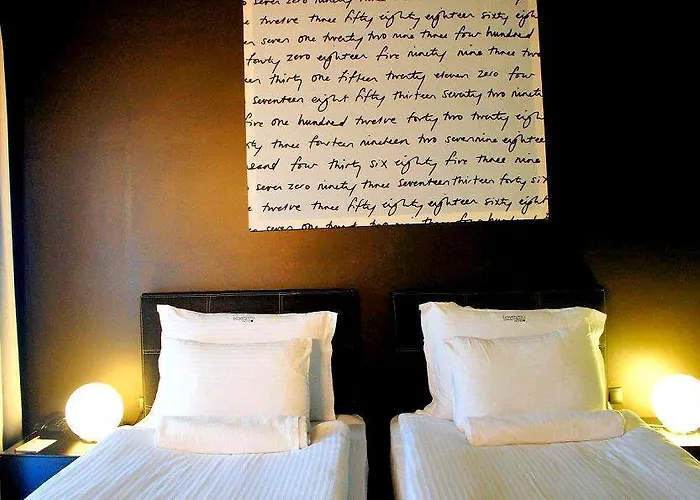 seven zero ninety three seventeen thirteen forty six
twelve three fifty eighty eighteen sixty eigh
seven one twenty two nine three four hundred
forty zero eighteen five ninety nine three two
seven thirty one fifteen twenty eleven zero four
seventeen eight fifty thirteen seventy two ninet
five one hundred twelve forty two twenty eigh
ty three fourteen nineteen two seven nine eightee
four thirty six eighty five three nine
seven zero ninety three seventeen thirteen forty six
twelve three fifty eighty eighteen sixty eight
seven one two nine three four hundred